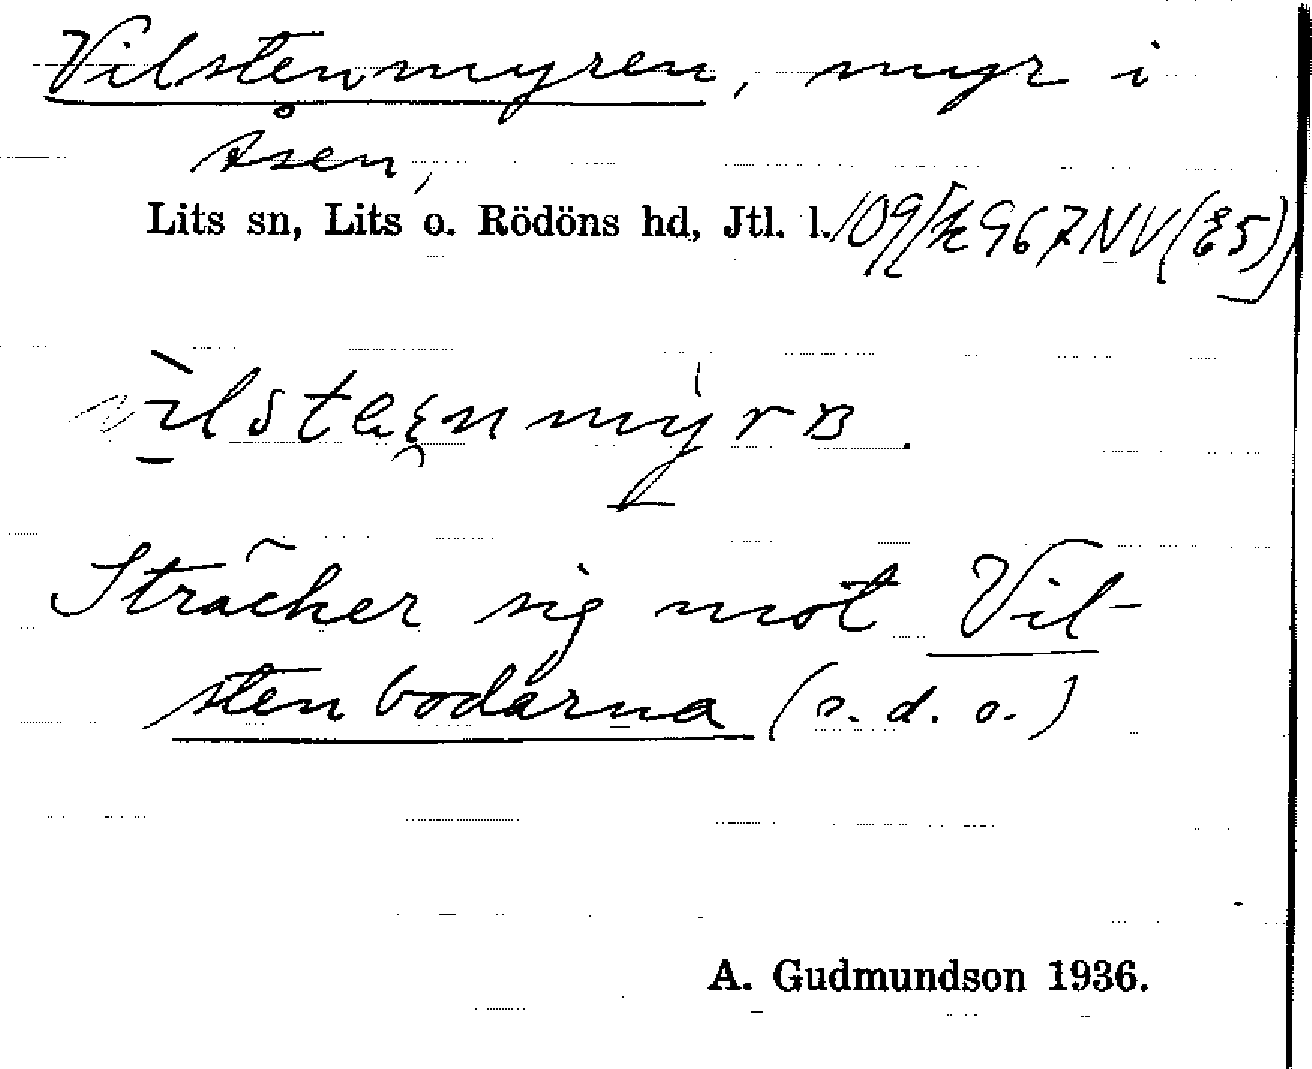 Vilstenmyren, myr i
Åsen,
Lits sn, Lits o. Rödöns hd, Jtl. l.
Sträcker sig mot Vil-
stenbodarna (s. d. o.)
A. Gudmundson 1936.